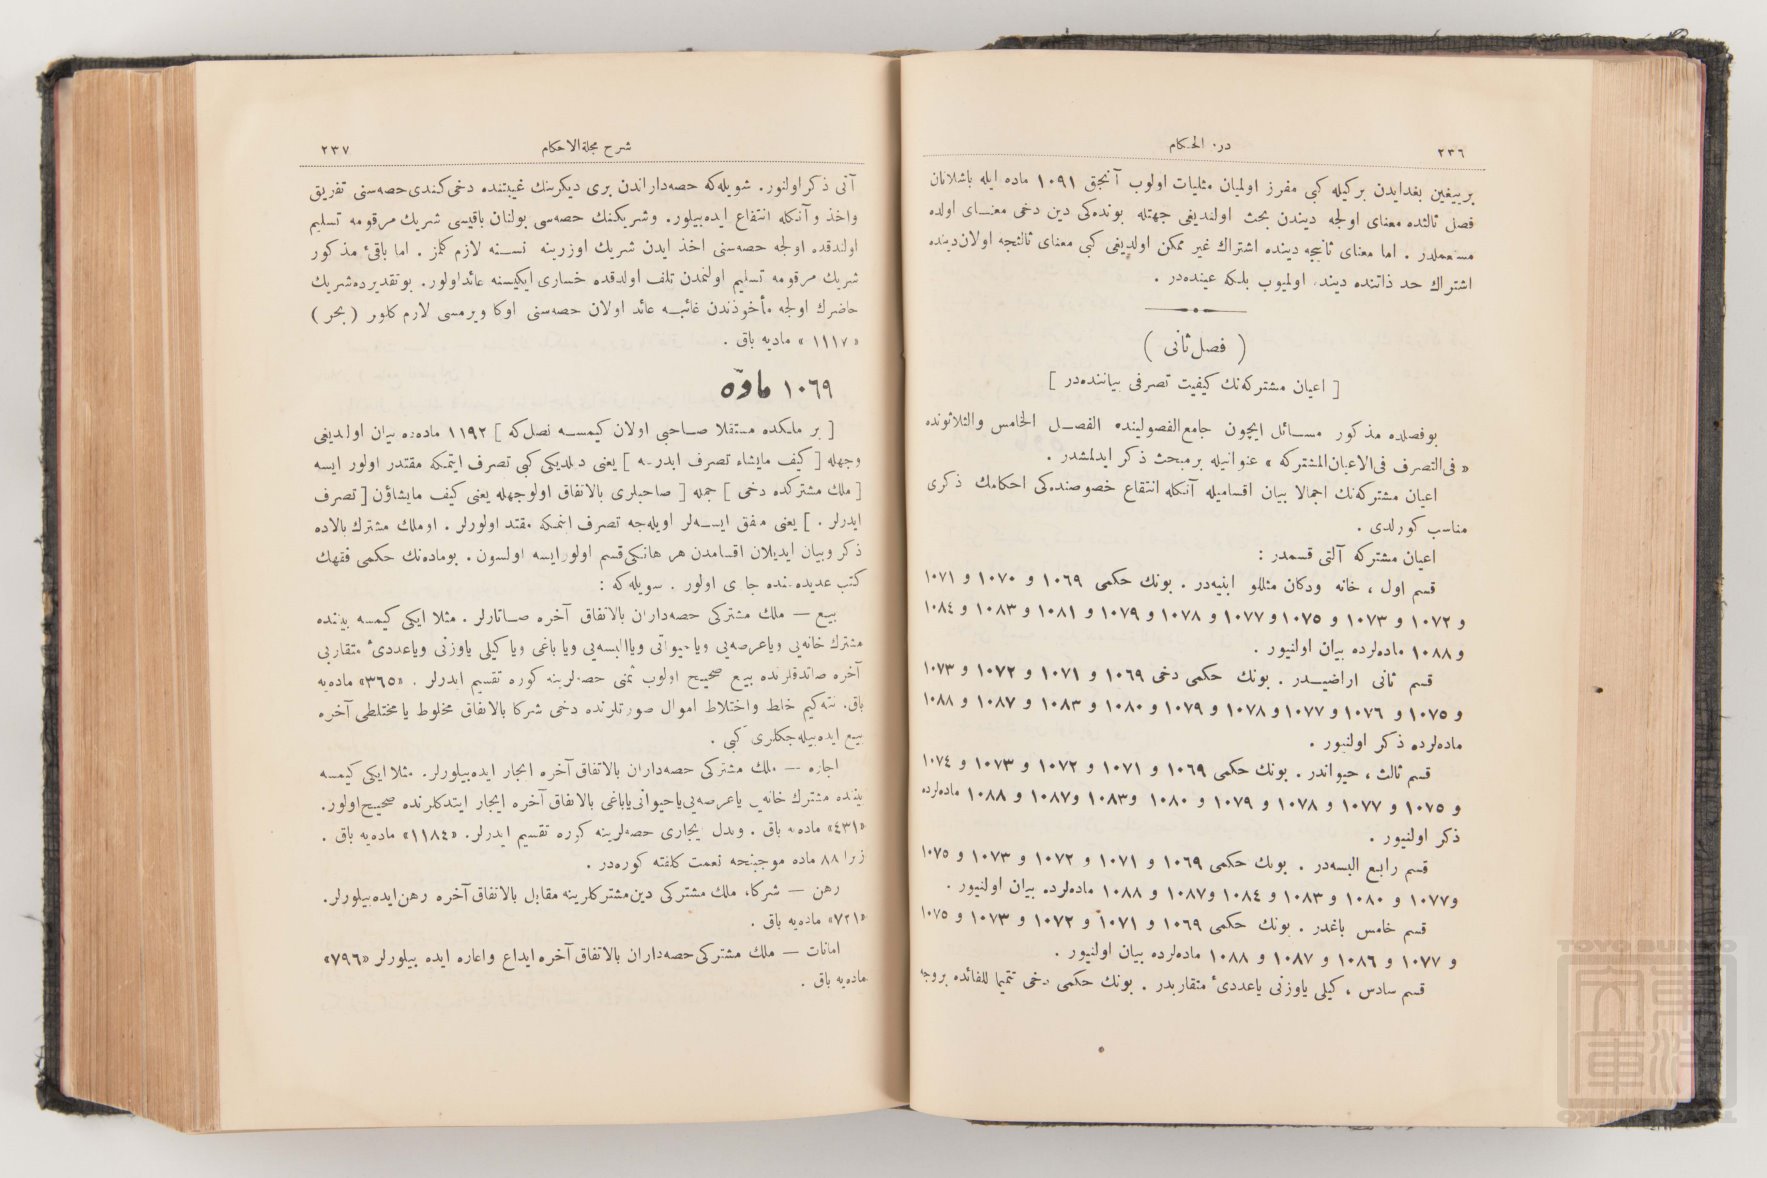 ٢٣٦
درر الحكام
بربيغين بغدايدن بركيله كبى مفرز اولميان مثليات اولوب آنجق ١٠٩١ ماده ايله باشلانان
فصل ثالثده معناى اولجه ديندن بحث اولنديغى جهتله بونده‌كى دين دخى معنــاى اولده
مستعملدر . اما معناى ثانيجه دينده اشتراك غير ممكن اولديغى كبى معناى ثالثجه اولان‌دينده
اشتراك حد ذاتنده دينده اولميوب بلكه عينده‌در .
( فصل ثانى )
[ اعيان مشتركه‌نك كيفيت تصرفى بياننده‌در ]
بوفصلده مذكور مســائل ايچون جامع‌الفصولينده الفصــل الخامس والثلاثونده
« فى‌التصرف فى‌الاعيان‌المشتركه » عنوانيله برمبحث ذكر ايدلمشدر .
اعيان مشتركه‌نك اجمالا بيان اقساميله آنكله انتفاع خصوصنده‌كى احكامك ذكرى
مناسب كورلدى .
اعيان مشتركه آلتى قسمدر :
قسم اول ، خانه ودكان مثللو ابنيه‌در . بونك حكمى ١٠٦٩ و ١٠٧٠ و ١٠٧١
و ١٠٧٢ و ١٠٧٣ و ١٠٧٥ و ١٠٧٧ و ١٠٧٨ و ١٠٧٩ و ١٠٨١ و ١٠٨٣ و ١٠٨٤
و ١٠٨٨ ماده‌لرده بيان اولنيور .
قسم ثانى اراضيــدر . بونك حكمى دخى ١٠٦٩ و ١٠٧١ و ١٠٧٢ و ١٠٧٣
و ١٠٧٥ و ١٠٧٦ و ١٠٧٧ و ١٠٧٨ و ١٠٧٩ و ١٠٨٠ و ١٠٨٣ و ١٠٨٧ و ١٠٨٨
ماده‌لرده ذكر اولنيور .
قسم ثالث ، حيواندر . بونك حكمى ١٠٦٩ و ١٠٧١ و ١٠٧٢ و ١٠٧٣ و ١٠٧٤
و ١٠٧٥ و ١٠٧٧ و ١٠٧٨ و ١٠٧٩ و ١٠٨٠ و١٠٨٣ و١٠٨٧ و ١٠٨٨ ماده‌لرده
ذكر اولنيور .
قسم رابع البسه‌در . بونك حكمى ١٠٦٩ و ١٠٧١ و ١٠٧٢ و ١٠٧٣ و ١٠٧٥
و١٠٧٧ و ١٠٨٠ و ١٠٨٣ و ١٠٨٤ و١٠٨٧ و ١٠٨٨ ماده‌لرده بيان اولنيور .
قسم خامس باغدر . بونك حكمى ١٠٦٩ و ١٠٧١ و ١٠٧٢ و ١٠٧٣ و ١٠٧٥
و ١٠٧٧ و ١٠٨٦ و ١٠٨٧ و ١٠٨٨ ماده‌لرده بيان اولنيور .
قسم سادس ، كيلى ياوزنى ياعددىٔ متقاربدر . بونك حكمى دخى تتميما للفائده بروجه
شرح مجلة الاحكام
٢٣٧
آتى ذكر اولنور. شويله‌كه حصه‌داراندن برى ديكرينك غيبتنده دخى كندى حصه‌سنى تفريق
واخذ وآنكله انتفاع ايده‌بيلور. وشريكنك حصه‌سى بولنان باقيسى شريك مرقومه تسليم
اولندقده اولجه حصه‌سنى اخذ ايدن شريك اوزرينه نســنه لازم كلمز . اما باقىٔ مذكور
شريك مرقومه تسليم اولنمدن تلف اولدقده خسارى ايكيسنه عائداولور. بوتقديرده‌شريك
حاضرك اولجه مأخوذندن غائبــه عائد اولان حصه‌سنى اوكا ويرمسى لازم كلور ( بحر )
« ١١١٧ » ماديه باق .
١٠٦٩ ماده
[ بر ملكده مستقلا صــاحبى اولان كيمســه نصل‌كه ] ١١٩٢ ماده‌ده بيان اولنديغى
وجهله [ كيف مايشاء تصرف ايدرسه ] يعنى ديلديكى كبى تصرف ايتمكه مقتدر اولور ايسه
[ ملك مشتركده دخى ] جمله [ صاحبلرى بالاتفاق اولوجهله يعنى كيف مايشاؤن [ تصرف
ايدرلر . ] يعنى متفق ايســه‌لر اويله‌جه تصرف ايتمكه مقتدر اولورلر . اوملك مشترك بالاده
ذكر وبيان ايديلان اقسامدن هر هانكى‌قسم اولورايسه اولسون . بوماده‌نك حكمى فقهك
كتب عديده‌سنده جارى اولور . شويله‌كه :
بيع — ملك مشتركى حصه‌داران بالاتفاق آخره صــاتارلر . مثلا ايكى كيمسه بيننده
مشترك خانه‌يى وياعرصه‌يى وياحيوانى وياالبسه‌يى ويا باغى ويا كيلى ياوزنى وياعددىٔ متقاربى
آخره صاتدقلرنده بيع صحيح اولوب ثمنى حصه‌لرينه كوره تقسيم ايدرلر . «٣٦٥» ماده‌يه
باق. نته‌كيم خلط واختلاط اموال صورتلرنده دخى شركا بالاتفاق مخلوط يا مختلطى آخره
بيع ايده‌بيله‌جكلرى كبى .
اجاره — ملك مشتركى حصه‌داران بالاتفاق آخره ايجار ايده‌بيلورلر. مثلا ايكى كيمسه
بيننده مشترك خانه‌يى ياعرصه‌يى‌ياحيوانى‌ياباغى بالاتفاق آخره ايجار ايتدكلرنده صحيح‌اولور.
«٤٣١» ماده‌يه باق . وبدل ايجارى حصه‌لرينه كوره تقسيم ايدرلر. «١١٨٤» ماده‌يه باق .
زيرا ٨٨ ماده موجبنجه نعمت كلفته كوره‌در .
رهن — شركا، ملك مشتركى دين‌مشتركلرينه مقابل بالاتفاق آخره رهن‌ايده‌بيلورلر.
«٧٢١» ماده‌يه باق .
امانات — ملك مشتركى حصه‌داران بالاتفاق آخره ايداع واعاره ايده بيلورلر «٧٩٦»
ماده‌يه باق .
TOYO BUNKO